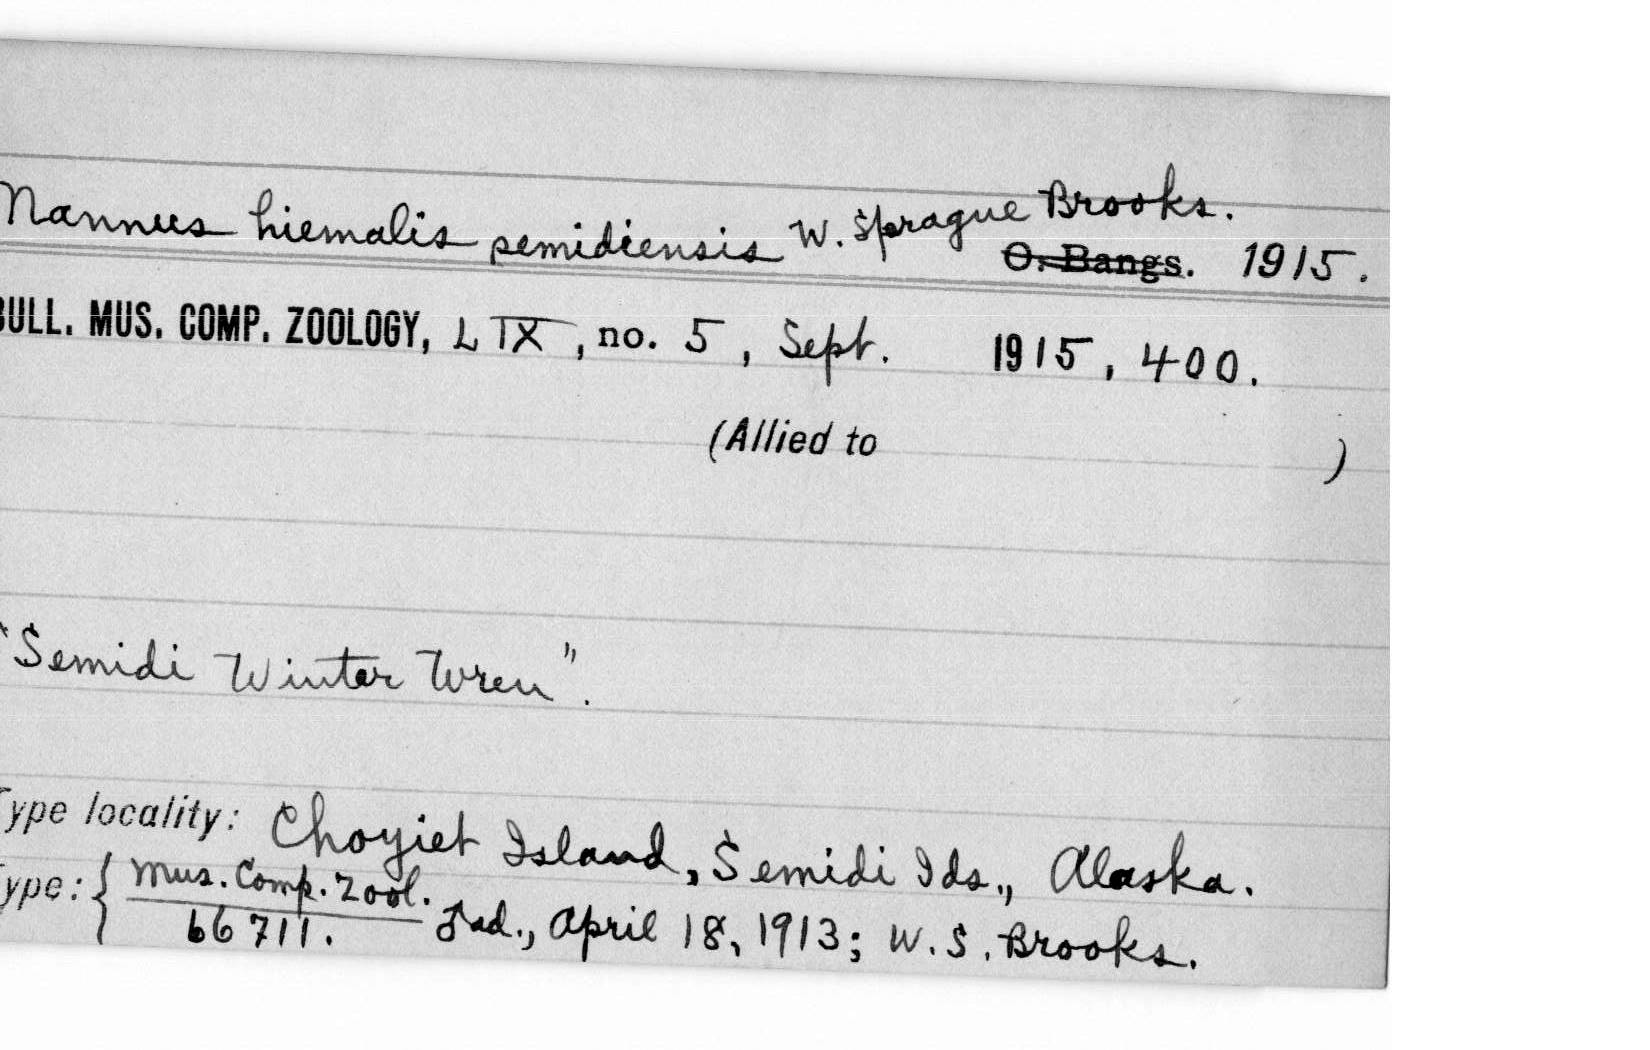 Nannus hiemalis semidiensis W. Sprague Brooks.
O. Bangs. 1915.
BULL. MUS. COMP. ZOOLOGY, LIX, no. 5, Sept. 1915, 400.
(Allied to )
"Semidi Winter Wren".
Type locality: Choyiet Island, Semidi Ids., Alaska.
Type: { Mus. Comp. Zool.
66711. ♂ad., April 18, 1913; W. S. Brooks.